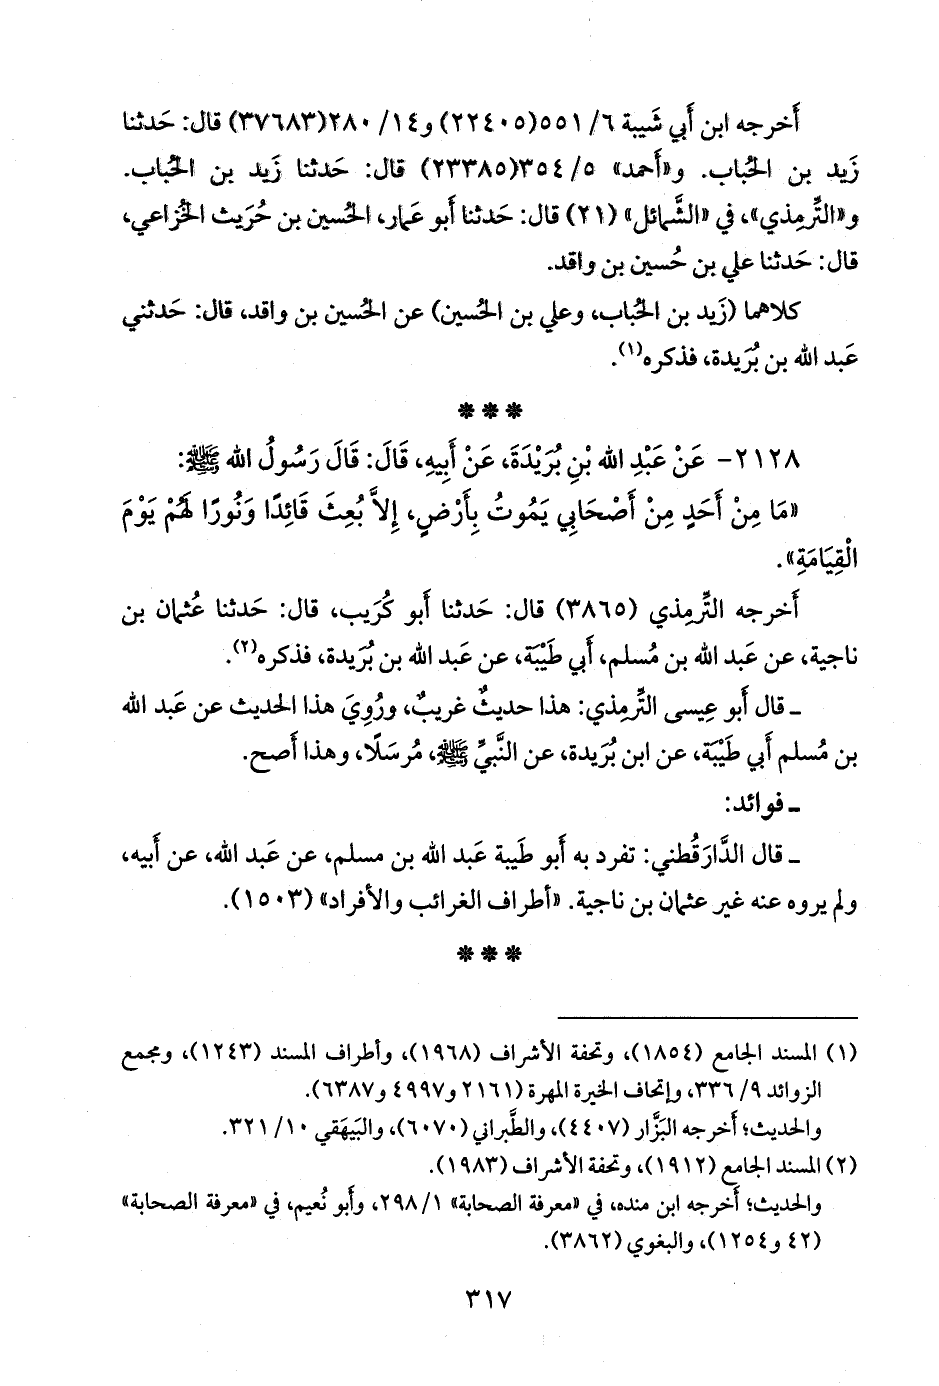 أَخرجه ابن أَبي شَيبة ٦/ ٥٥١(٢٢٤٠٥) و١٤/ ٢٨٠(٣٧٦٨٣) قال: حَدثنا
زَيد بن الحُباب. و«أَحمد» ٥/ ٣٥٤(٢٣٣٨٥) قال: حَدثنا زَيد بن الحُباب.
و«التِّرمِذي»، في «الشَّمائل» (٢١) قال: حَدثنا أَبو عَمار، الحُسين بن حُرَيث الخُزاعي،
قال: حَدثنا علي بن حُسين بن واقد.
كلاهما (زَيد بن الحُباب، وعلي بن الحُسين) عن الحُسين بن واقد، قال: حَدثني
عَبد الله بن بُرَيدة، فذكره(١).
* * *
٢١٢٨- عَنْ عَبْدِ الله بْنِ بُرَيْدَةَ، عَنْ أَبِيهِ، قَالَ: قَالَ رَسُولُ الله ﷺ:
«مَا مِنْ أَحَدٍ مِنْ أَصْحَابِي يَمُوتُ بِأَرْضٍ، إِلاَّ بُعِثَ قَائِدًا وَنُورًا لَهُمْ يَوْمَ
الْقِيَامَةِ».
أَخرجه التِّرمِذي (٣٨٦٥) قال: حَدثنا أَبو كُرَيب، قال: حَدثنا عُثمان بن
ناجية، عن عَبد الله بن مُسلم، أَبي طَيْبَة، عن عَبد الله بن بُرَيدة، فذكره(٢).
ـ قال أَبو عِيسى التِّرمِذي: هذا حديثٌ غريبٌ، ورُوِيَ هذا الحديث عن عَبد الله
بن مُسلم أَبي طَيْبَة، عن ابن بُرَيدة، عن النَّبيِّ ﷺ، مُرسَلًا، وهذا أَصح.
ـ فوائد:
ـ قال الدَّارَقُطني: تفرد به أَبو طَيبة عَبد الله بن مسلم، عن عَبد الله، عن أَبيه،
ولم يروه عنه غير عثمان بن ناجية. «أطراف الغرائب والأفراد» (١٥٠٣).
* * *
(١) المسند الجامع (١٨٥٤)، وتحفة الأشراف (١٩٦٨)، وأطراف المسند (١٢٤٣)، ومجمع
الزوائد ٩/ ٣٣٦، وإتحاف الخيرة المهرة (٢١٦١ و٤٩٩٧ و٦٣٨٧).
والحديث؛ أَخرجه البَزَّار (٤٤٠٧)، والطَّبراني (٦٠٧٠)، والبَيهَقي ١٠/ ٣٢١.
(٢) المسند الجامع (١٩١٢)، وتحفة الأشراف (١٩٨٣).
والحديث؛ أَخرجه ابن منده، في «معرفة الصحابة» ١/ ٢٩٨، وأَبو نُعيم، في «معرفة الصحابة»
(٤٢ و١٢٥٤)، والبغوي (٣٨٦٢).
٣١٧